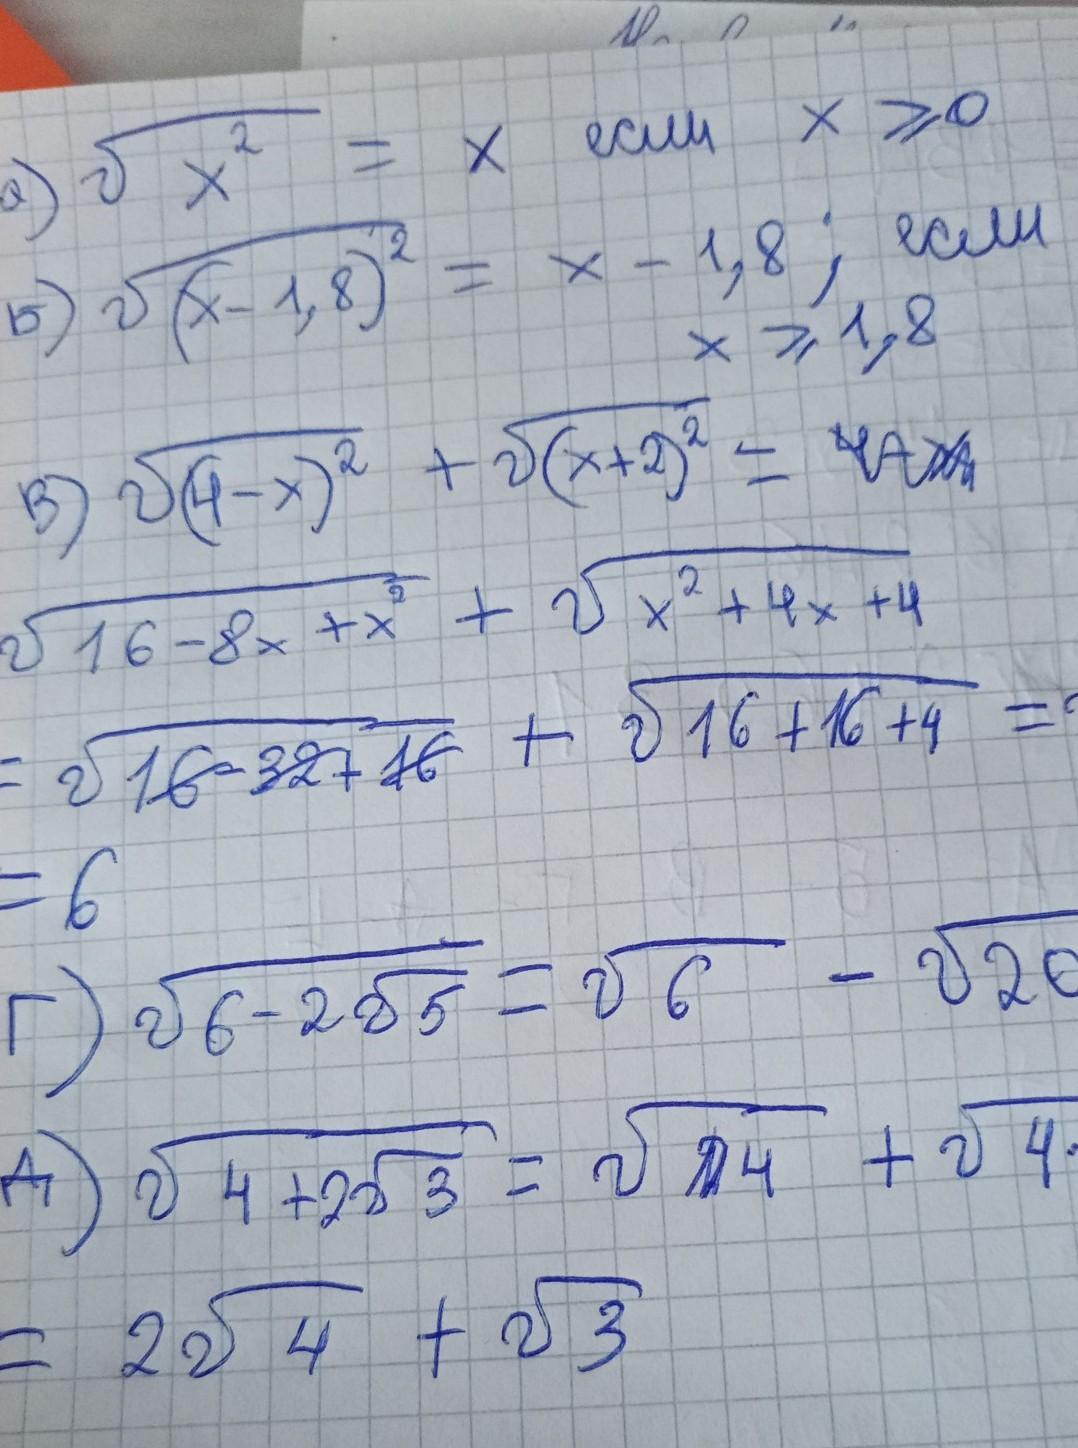 а) √x² = x если x ⩾ 0
Б) √(x-1,8)² = x - 1,8; если
x ⩾ 1,8
В) √(4-x)² + √(x+2)² =
√16-8x+x² + √x²+4x+4
= √16-32+16 + √16+16+4 =
= 6
Г) √6-2√5 = √6 - √20
Д) √4+2√3 = √4 + √4·
= 2√4 + √3